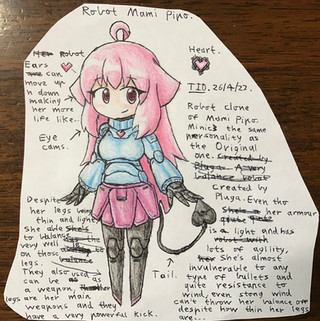 Robot Mami Pipo.
Robot
Ears
can
move up
n down
making
her more
life like.
Eye
cams.
Despite
her legs
thin and light,
She able
to balance
very well
on those
legs.
They also
can be as
a weapon,
legs are her main
weapons and they
have a very powerful kick.
Heart.
TIO. 26/4/23.
Robot clone
of Mami Pipo.
Minics the same
personality as
the Original
one.
created by
Pluga. Even tho
her armour
is a light and has
lots of agility,
She's almost
invulnerable to any
type of bullets and
quite resistance to
wind, even stong wind
can't throw her balance off
despite how thin her legs
are...
Tail.